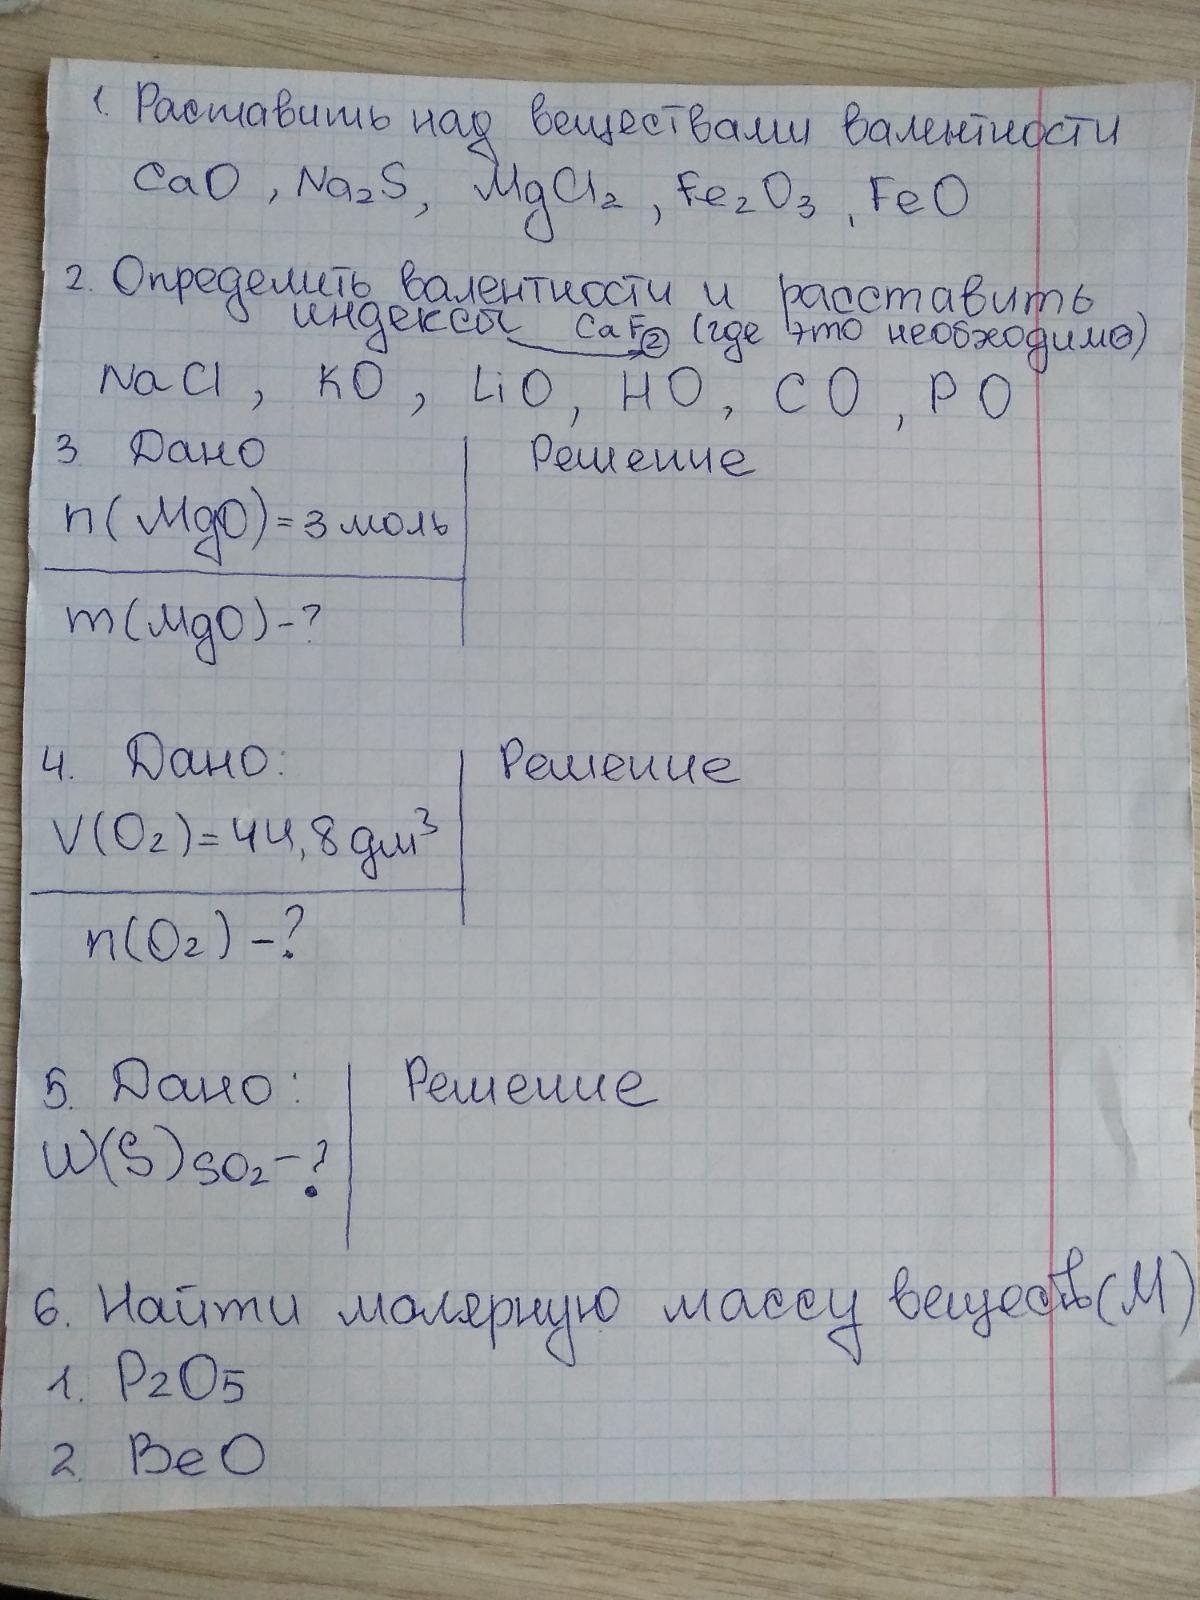 1. Раставить над веществами валентности
CaO, Na2S, MgCl2, Fe2O3, FeO
2. Определить валентности и расставить
индексы CaF2 (где это необходимо)
NaCl, KO, LiO, HO, CO, PO
3. Дано Решение
n(MgO)=3 моль
m(MgO)-?
4. Дано: Решение
V(O2)=44,8 дм³
n(O2)-?
5. Дано: Решение
W(S)SO2-?
6. Найти молярную массу веществ(M)
1. P2O5
2. BeO